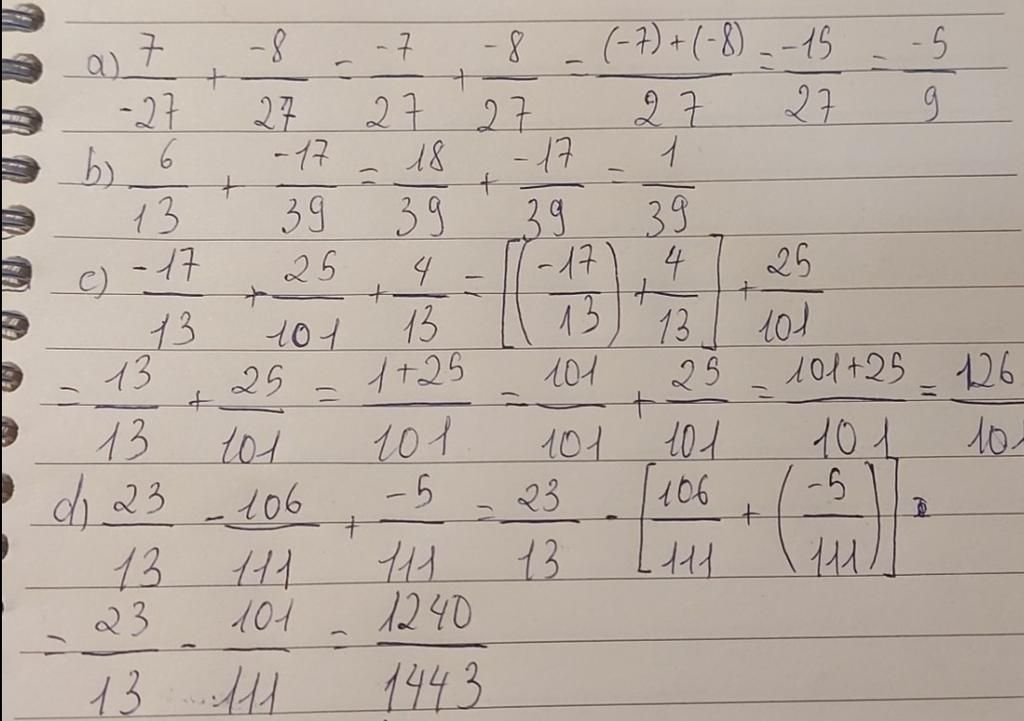 a) 7/-27 + -8/27 = -7/27 + -8/27 = (-7)+(-8)/27 = -15/27 = -5/9
b) 6/13 + -17/39 = 18/39 + -17/39 = 1/39
c) -17/13 + 25/101 + 4/13 = [(-17/13) + 4/13] + 25/101
= 13/13 + 25/101 = 1+25/101 = 101/101 + 25/101 = 101+25/101 = 126/101
d) 23/13 - 106/111 + -5/111 = 23/13 - [106/111 + (-5/111)]
= 23/13 - 101/111 = 1240/1443